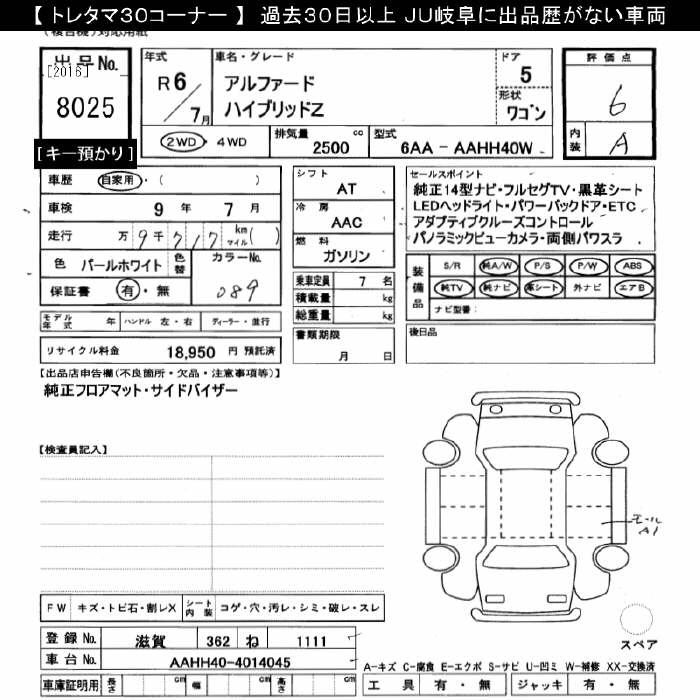 【 トレタマ30コーナー 】 過去30日以上 JU岐阜に出品歴がない車両
出品No.
[2016]
8025
[キー預かり]
年式
R6/7月
車名・グレード
アルファード
ハイブリッドZ
ドア
5
形状
ワゴン
評価点
6
内装
A
2WD・4WD
排気量
2500 cc
型式
6AA - AAHH40W
車歴 自家用・( )
車検 9年 7月
走行 万9千717 km マイル( )
色 パールホワイト 色替 カラーNo.
089
保証書 有・無
シフト
AT
冷房
AAC
燃料
ガソリン
乗車定員 7 名
積載量 kg
総重量 kg
書類期限
月 日
セールスポイント
純正14型ナビ・フルセグTV・黒革シート
LEDヘッドライト・パワーバックドア・ETC
アダプティブクルーズコントロール
パノラミックビューカメラ・両側パワスラ
装備品
S/R 純A/W P/S P/W ABS
純TV 純ナビ 革シート 外ナビ エアB
ナビ型番:
後日品
モデル年式 年 ハンドル 左・右 ディーラー・並行
リサイクル料金 18,950 円 預託済
【出品店申告欄(不良箇所・欠品・注意事項等)】
純正フロアマット・サイドバイザー
【検査員記入】
モール
A1
スペア
FW キズ・トビ石・割レX シート内装 コゲ・穴・汚レ・シミ・破レ・スレ
登録No. 滋賀 362 ね 1111
車台No. AAHH40-4014045
車庫証明用 長さ cm 幅 cm 高さ cm
A-キズ C-腐食 E-エクボ S-サビ U-凹ミ W-補修 XX-交換済
工具 有・無 ジャッキ 有・無